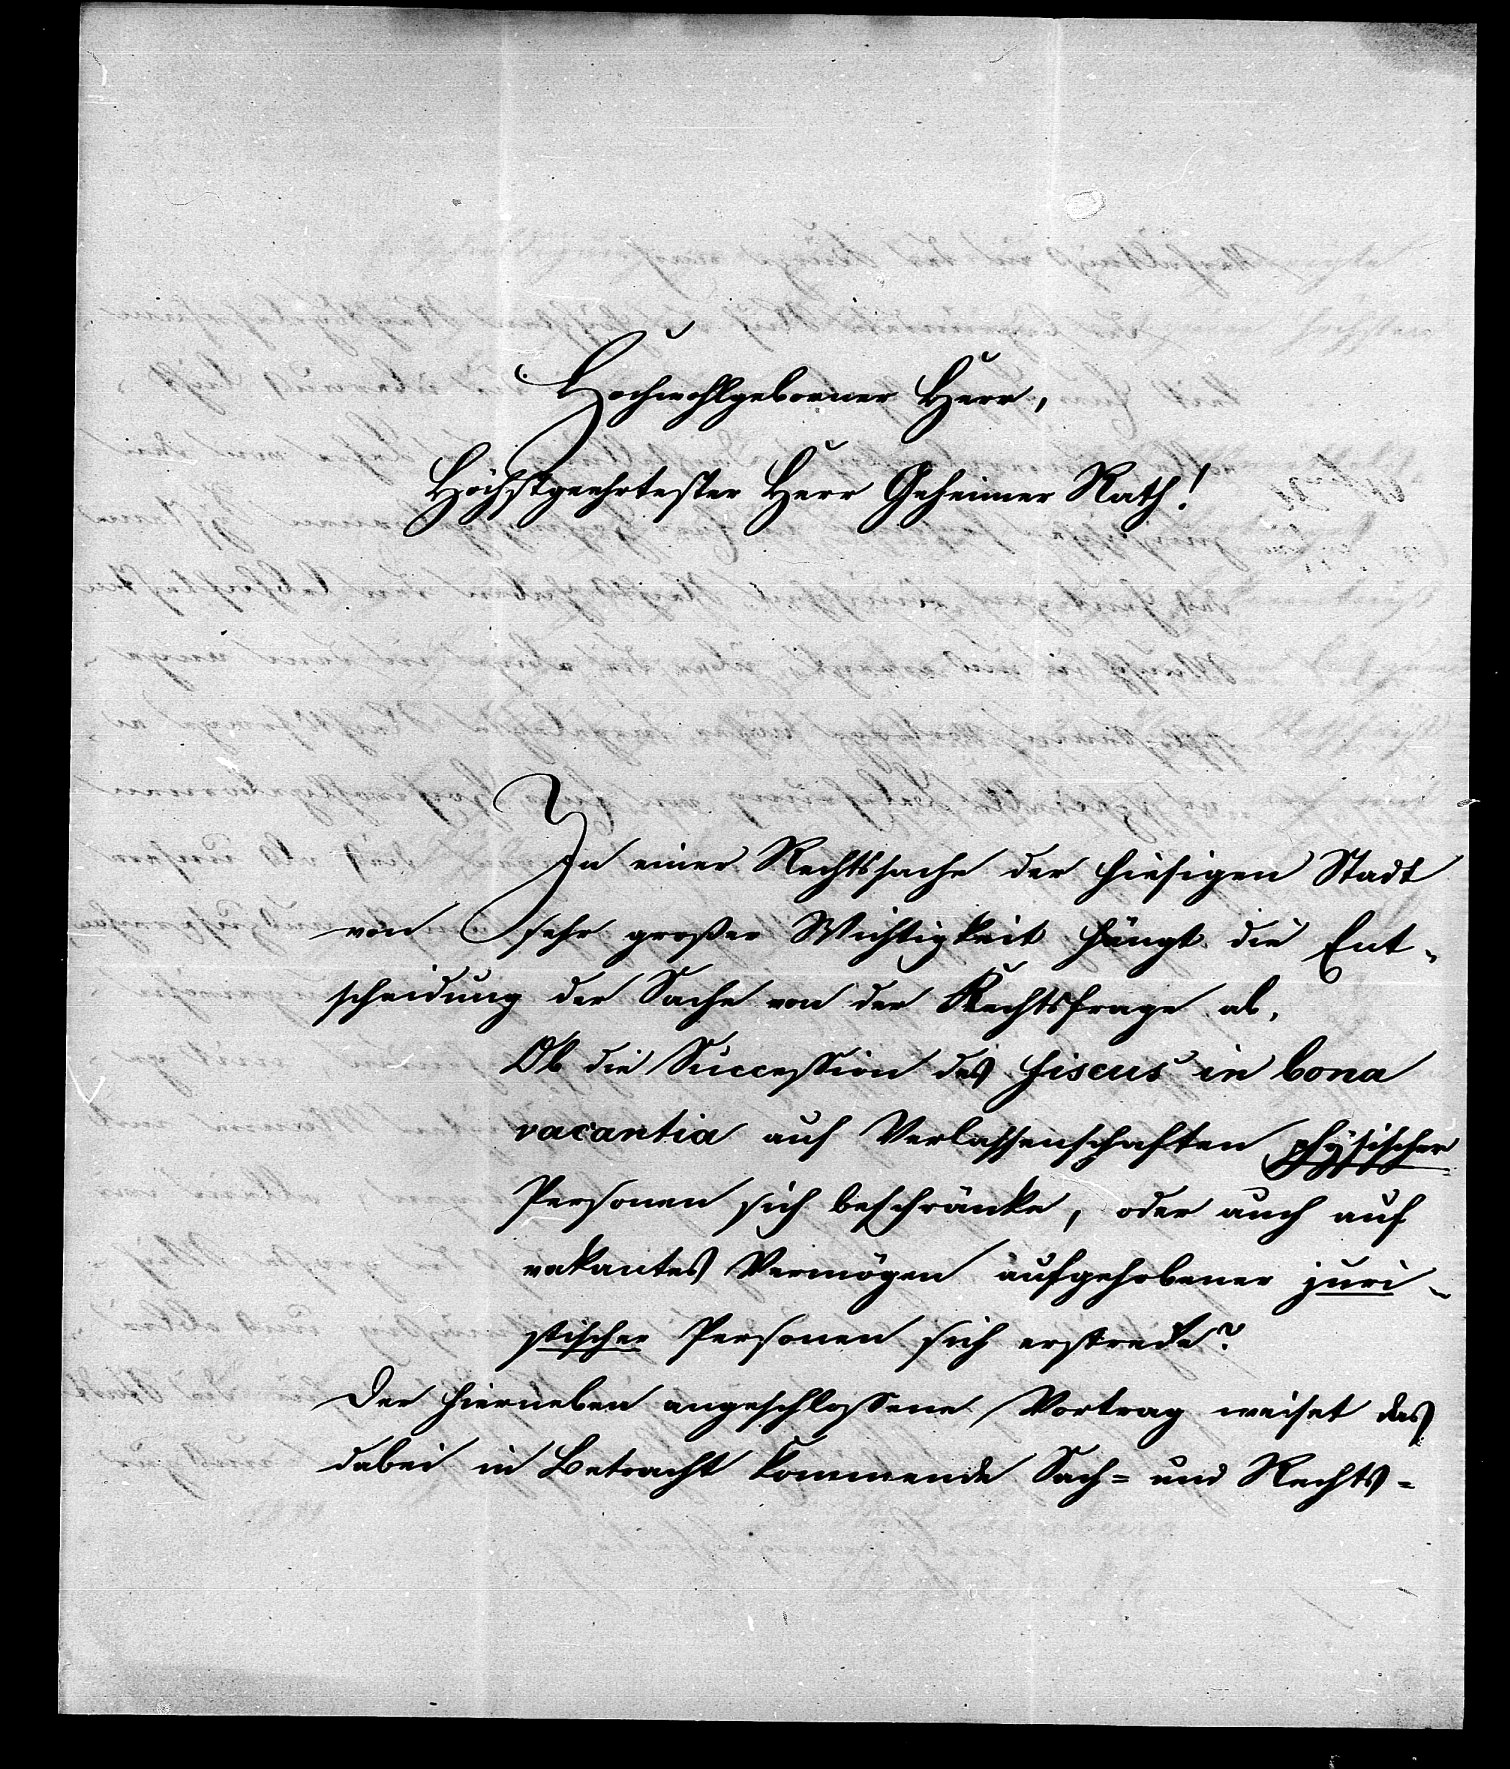 Hochwohlgeborner Herr,
Höchstgeehrtester Herr Geheimer Rath!
In einer Rechtssache der hiesigen Stadt
von sehr großer Wichtigkeit hängt die Ent-
scheidung der Sache von der Rechtsfrage ab,
Ob die Succession des fiscus in bona
vacantia auf Verlassenschaften physischer
Personen sich beschränke, oder auch auf
vakantes Vermögen aufgehobener juri-
stischer Personen sich erstrecke?
Der hierneben angeschlossene Vortrag weiset das
dabei in Betracht kommende Sach= und Rechts-